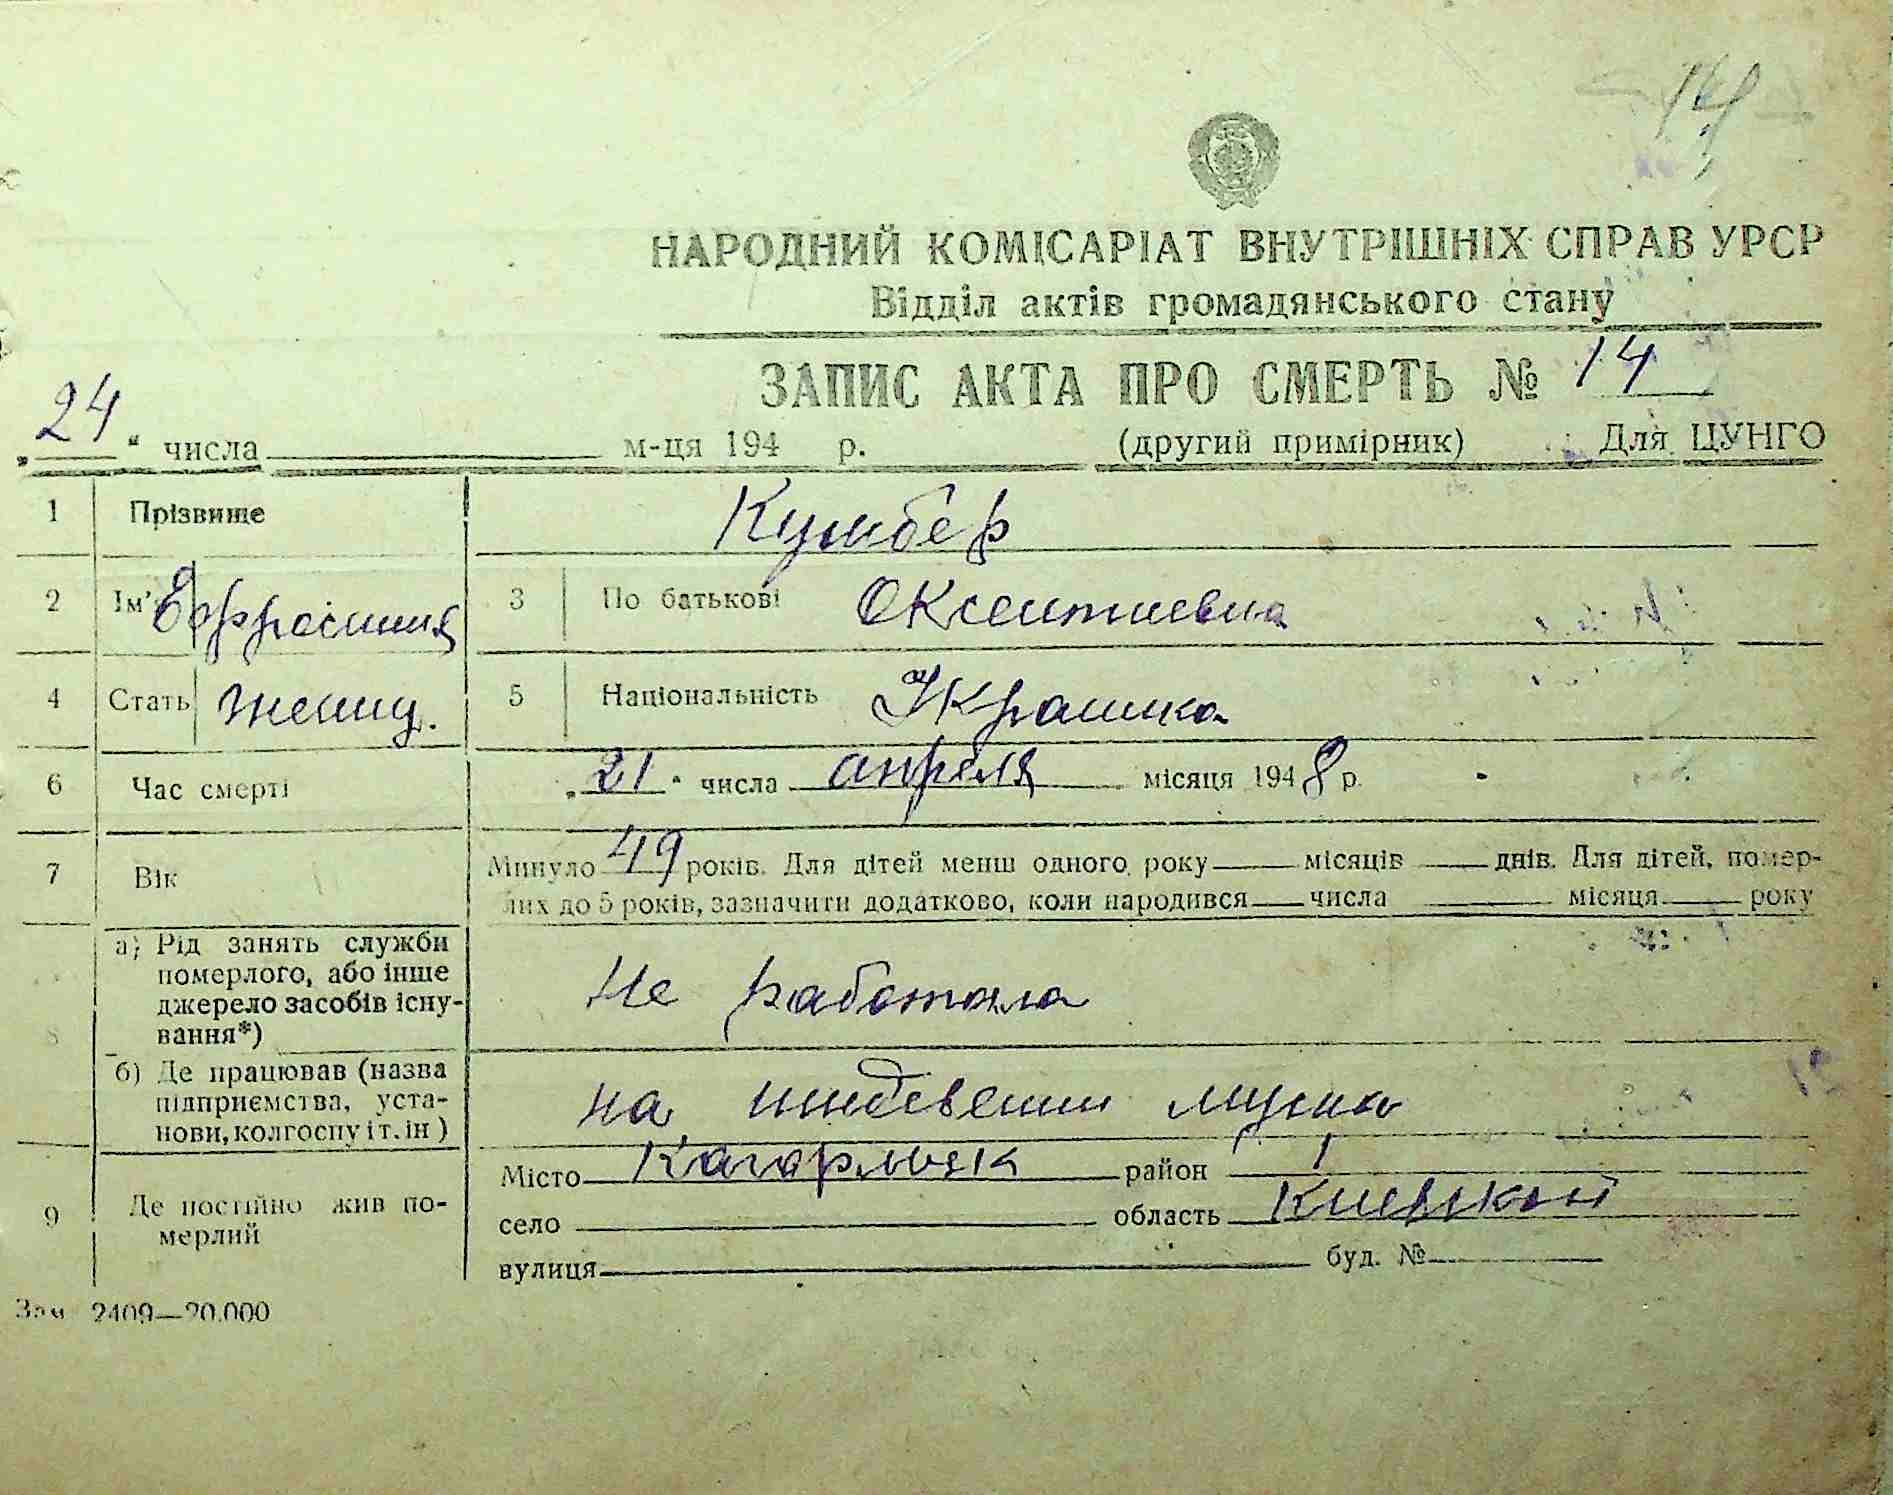 14
НАРОДНИЙ КОМІСАРІАТ ВНУТРІШНІХ СПРАВ УРСР
Відділ актів громадянського стану
ЗАПИС АКТА ПРО СМЕРТЬ № 14
„24“ числа м-ця 194 р. (другий примірник) Для ЦУНГО
1 Прізвище Кумбер
2 Ім'я Ефросиния 3 По батькові Оксентиевна
4 Стать женщ. 5 Національність Украинка
6 Час смерті „21“ числа апреля місяця 1948 р.
7 Вік Минуло 49 років. Для дітей менш одного року місяців днів. Для дітей, помер-
лих до 5 років, зазначити додатково, коли народився числа місяця року
8 а) Рід занять служби
померлого, або інше
джерело засобів існу-
вання*) Не работала
б) Де працював (назва
підприємства, уста-
нови, колгоспу і т. ін) на иждевении мужа
9 Де постійно жив по-
мерлий
Місто Кагарлыяк район 1
село область Киевской
вулиця буд. №
Зам 2409—20.000